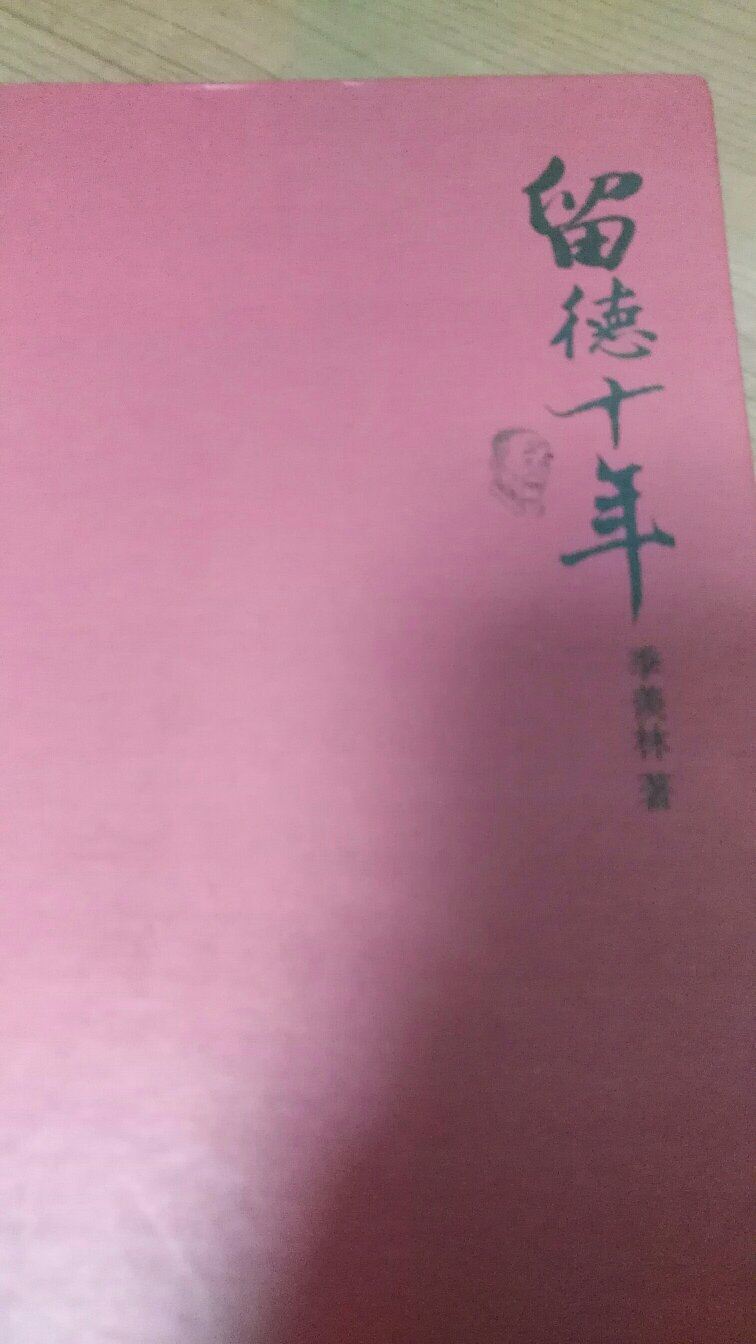 留德十年
季羡林 著